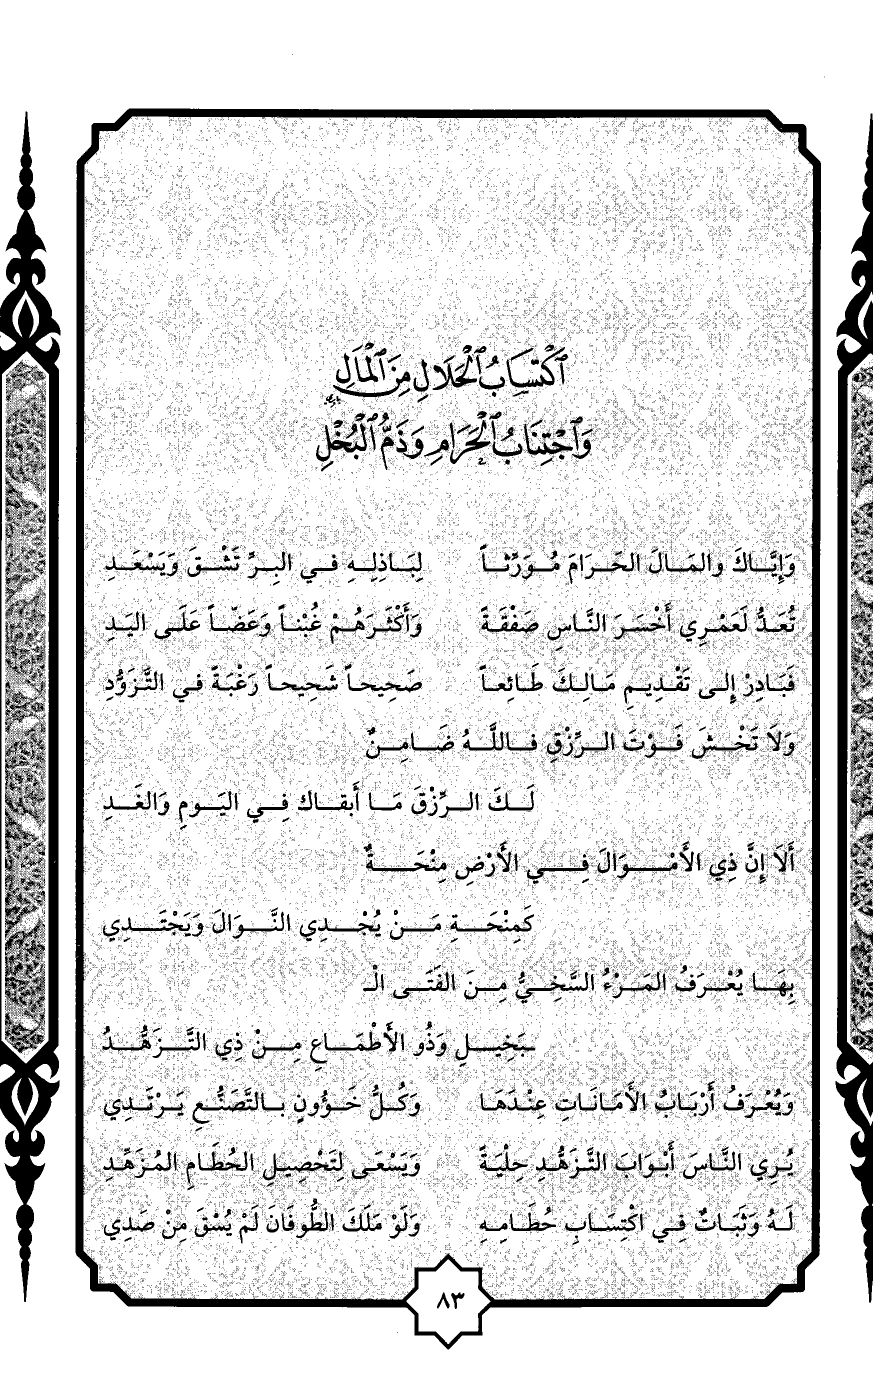 ٱكْتِسَابُ ٱلْحَلَالِ مِنَ ٱلْمَالِ
وَٱجْتِنَابُ ٱلْحَرَامِ وَذَمُّ ٱلْبُخْلِ
وَإِيَّاكَ والمَالَ الحَرَامَ مُوَرِّثاً لِبَاذِلِهِ في البِرِّ تَشْقَ وَيَسْعَدِ
تُعَدُّ لَعَمْرِي أَخْسَرَ النَّاسِ صَفْقَةً وَأَكْثَرَهُمْ غُبْناً وَعَضّاً عَلَى اليَدِ
فَبَادِرْ إِلى تَقْدِيمِ مَالِكَ طَائِعاً صَحِيحاً شَحِيحاً رَغْبَةً في التَّزَوُّدِ
وَلاَ تَخْشَ فَوْتَ الرِّزْقِ فاللَّهُ ضَامِنٌ
لَكَ الرِّزْقَ مَا أَبقاك فِي اليَومِ وَالغَدِ
أَلَا إِنَّ ذِي الأَمْوَالَ فِي الأَرْضِ مِنْحَةٌ
كَمِنْحَةِ مَنْ يُجْدِي النَّوَالَ وَيَجْتَدِي
بِهَا يُعْرَفُ المَرْءُ السَّخِيُّ مِنَ الفَتَى الْـ
ـبَخِيلِ وَذُو الأَطْمَاعِ مِنْ ذِي التَّزَهُّدُ
وَيُعْرَفُ أَرْبَابُ الأَمَانَاتِ عِنْدَهَا وَكُلُّ خَؤُونٍ بالتَّصَنُّعِ يَرْتَدِي
يُرِي النَّاسَ أَبْوَابَ التَّزَهُّدِ حِلْيَةً وَيَسْعَى لِتَحْصِيلِ الحُطَامِ المُزَهِّدِ
لَهُ وَثَبَاتٌ فِي اكْتِسَابِ حُطَامِهِ وَلَوْ مَلَكَ الطُّوفَانَ لَمْ يُسْقَ مِنْ صَدِي
٨٣